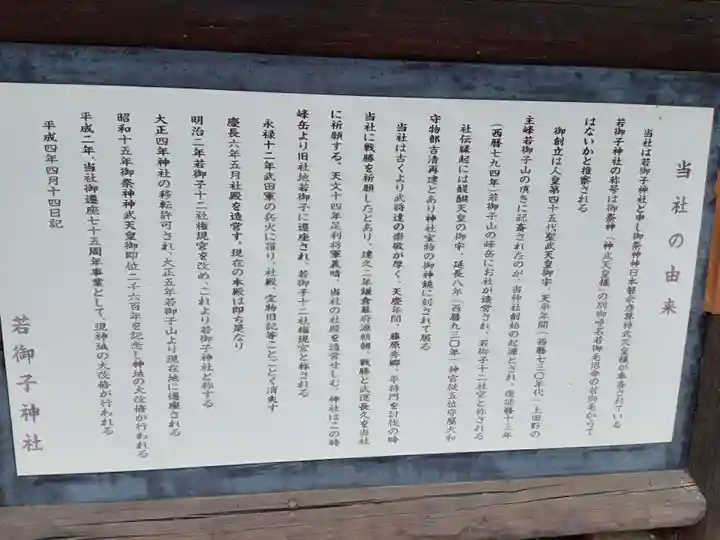 当社の由来
当社は若御子神社と申し御祭神神日本磐余彦尊神武天皇様が奉斎されている
若御子神社の称号は御祭神「神武天皇様」の別御呼名若御毛沼命の若御毛からて
はないかと推察される
御創立は人皇第四十五代聖武天皇御宇、天平年間(西暦七三〇年代)上田野の
主峰若御子山の頂きに記斎されたのが、当神社創始の起源とされ、後延暦十三年
(西暦七九四年)若御子山の峰岳にお社が造営され、若御子十二社宮と称される
社伝縁起には醍醐天皇の御宇、延長八年(西暦九三〇年)神官従五位守屋大和
守物部吉清再建とあり神社宝物の御神鏡に刻されて居る
当社は古くより武将達の崇敬が厚く、天慶年間、藤原秀郷、平将門を討伐の時
当社に戦勝を祈願したとあり、建久二年鎌倉幕府源頼朝、戦勝と武運長久を当社
に祈願する。天文十四年足利将軍義晴、当社の社殿を造営せしむ。神社はこの時
峰岳より旧社地若御子に遷座され、若御子十二社権現宮と称される
永禄十二年武田軍の兵火に罹り、社殿、宝物旧記等ことごとく消失す
慶長六年五月社殿を造営す。現在の本殿は即ち是なり
明治二年若御子十二社権現宮を改め、これより若御子神社と称する
大正四年神社の移転許可され、大正五年若御子山より現在地に遷座される
昭和十五年御祭神神武天皇御即位二千六百年を記念し神域の大改修が行われる
平成二年、当社御遷座七十五周年事業として、現神域の大改修が行われる
平成四年四月十四日記
若御子神社